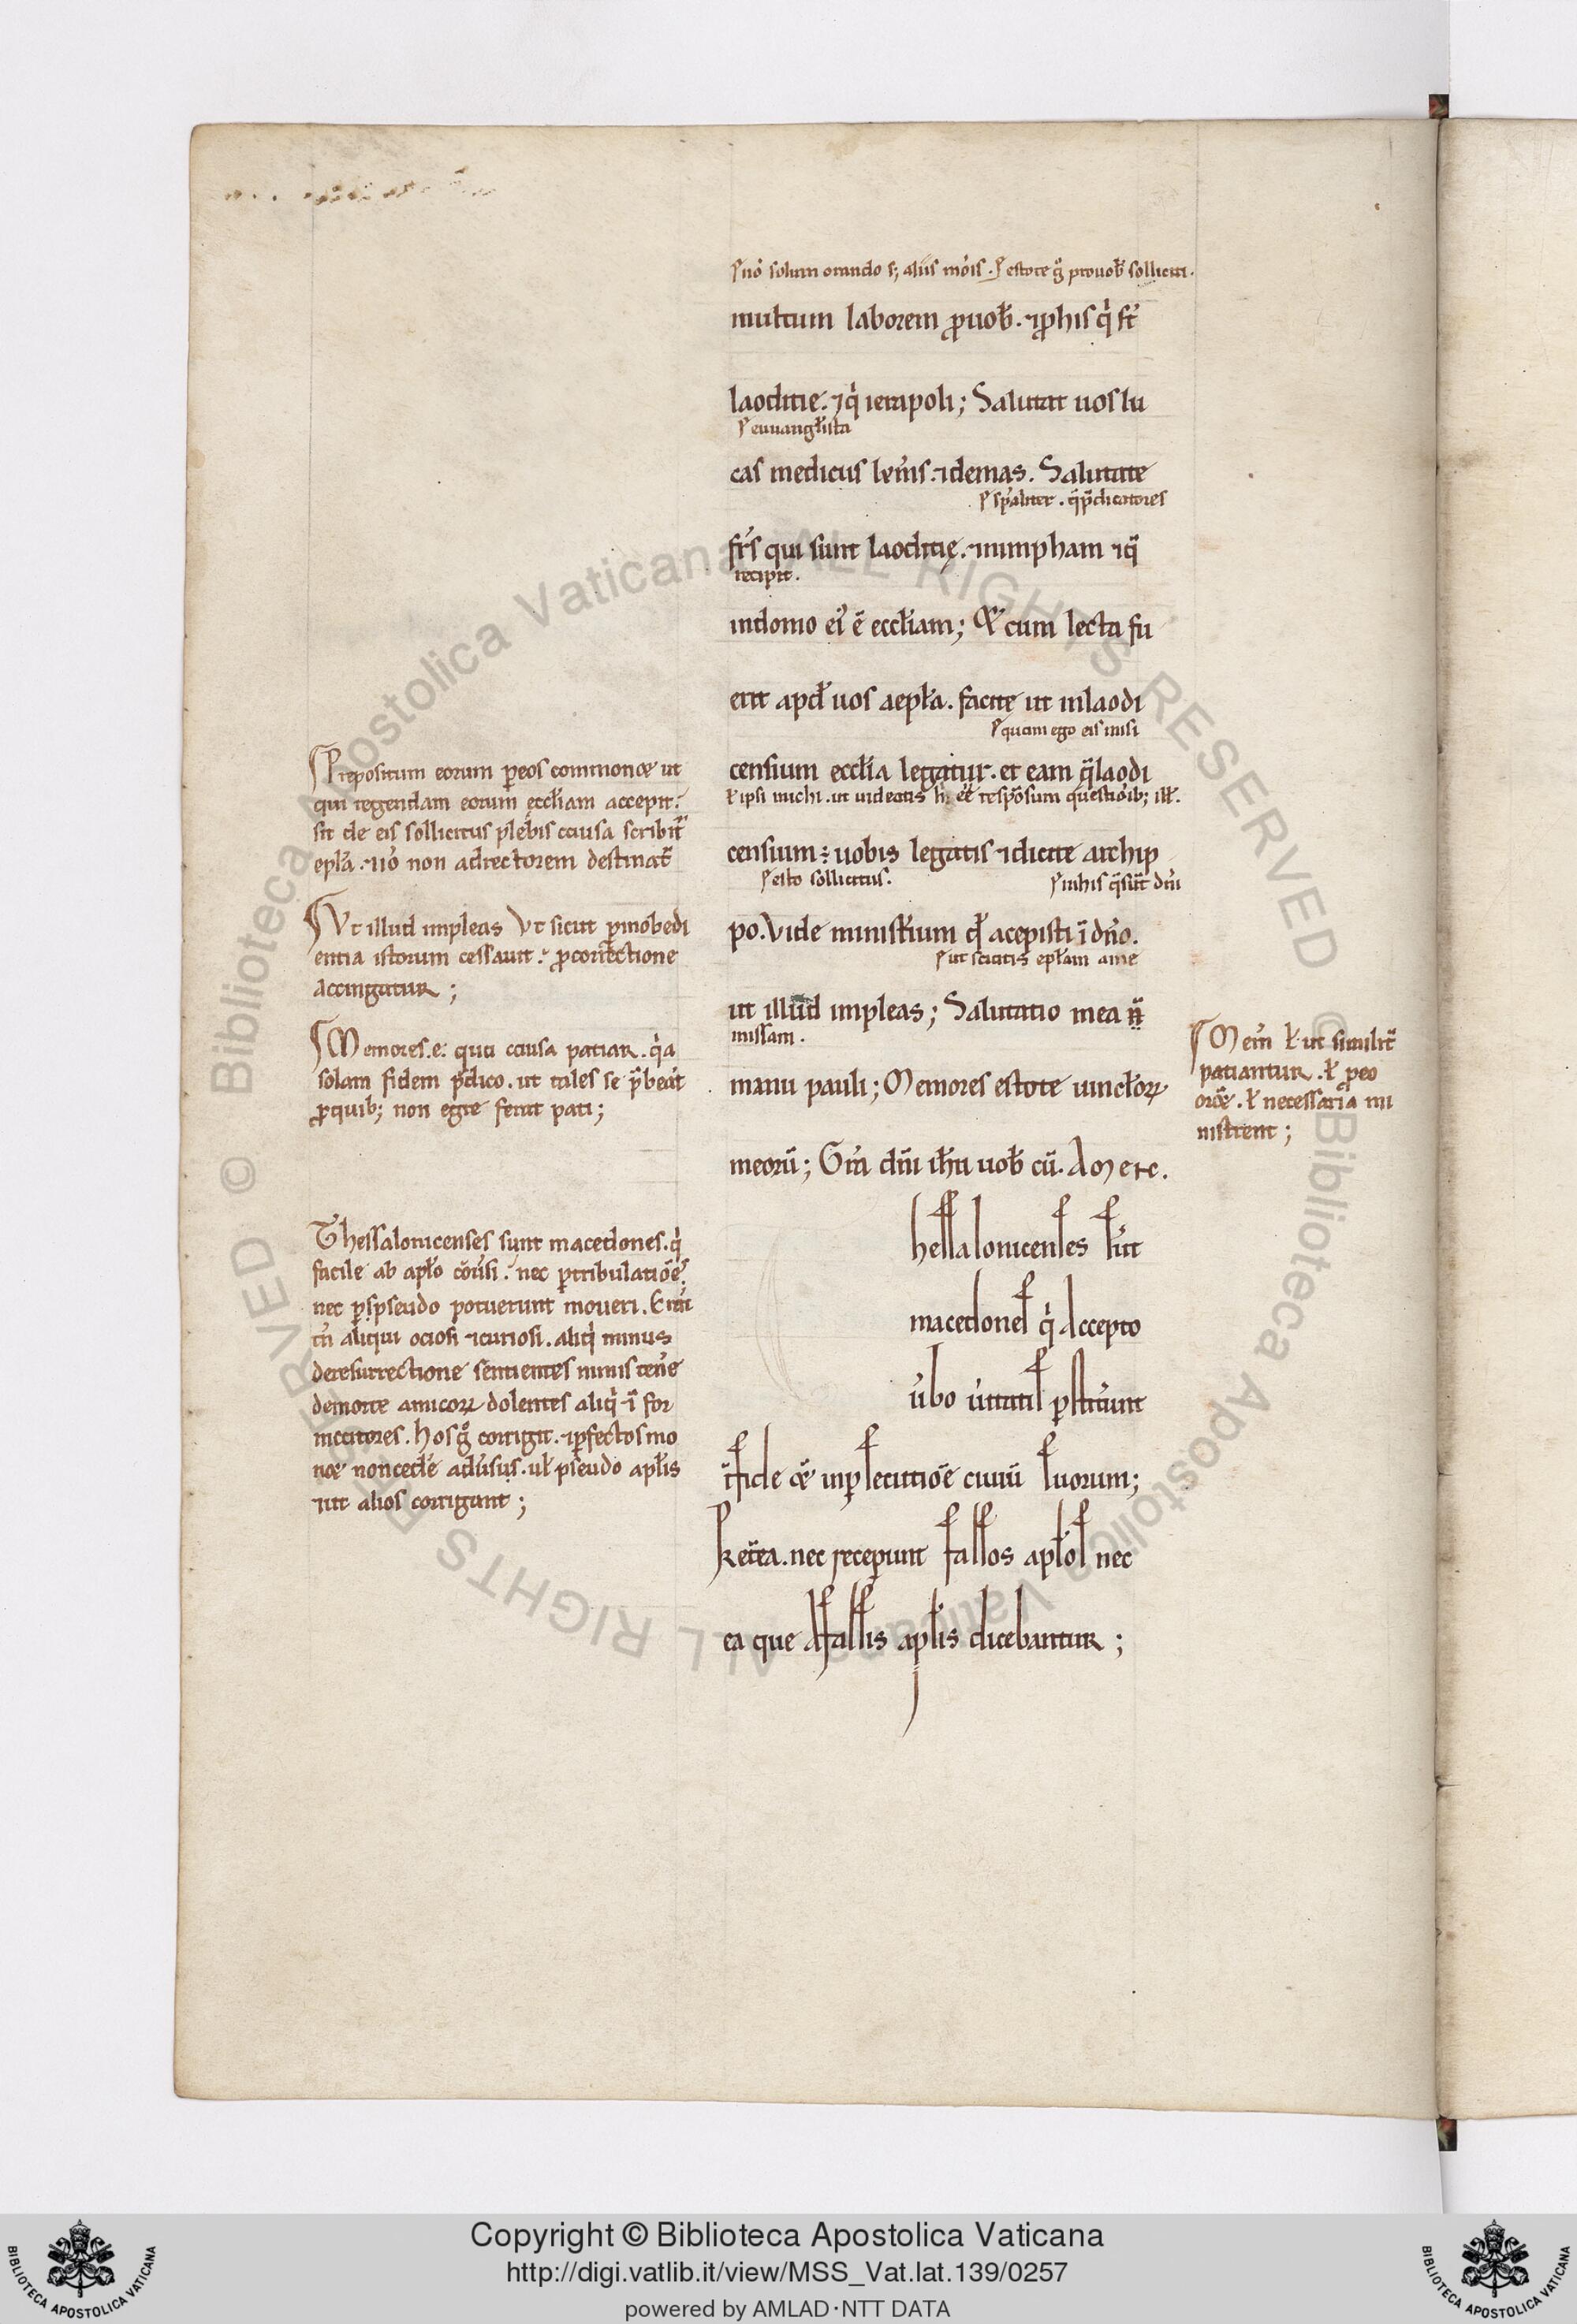 ſ nō solum orando s; aliis mōis. ſ estote gͦ pro uob̄ solliciti.
multum laborem ꝓ uob̄. ⁊ ꝓ his qͥ sͭ
laodicie. ⁊ qͥ ierapoli; Salutat uos lu
ſ euuangl̄ista
cas medicus kr̄mis. ⁊ demas. Salutate
ſ sp̄aliter. q̄ p̄dicatores
fr̄s qui sunt laodicię. ⁊ nimpham ⁊ q̄
recipit.
in domo ei᾽ ē eccl̄iam; Et cum lecta fu
erit apd̄ uos aepl̄a. facite ut in laodi
ſ quam ego eis misi
censium eccl̄ia legatur. et eam q̄ laodi
ł ipsi michi. ut uideatis h̄ ēē resp̄osum questiōib; ill̄.
censium ē: uobis legatis ⁊ dicite archip
ſ esto sollicitus.
ſ in his q̄ sūt dn̄i
po. Vide minist̄ium qd̄ acepisti ī dn̄o.
ſ ut sciatis epl̄am a me
ut illud impleas; Salutatio mea
missam.
manu pauli; Memores estote uincl̄oꝝ
meorū; Gr̄a dn̄i ih̄u uob̄ cū. Amen.
hessalonicenses sunt
macedones qͥ Accepto
u̅bo u̅itatis ꝑstit̅unt
ī fide &̄ in ꝑsecutiōe ciuiū suorum;
Ret̄ea. nec recepunt falsos apl̄os nec
ea que A falsis apl̄is dicebantur;
Prepositum eorum ꝑ eos commonet ut
qui regendam eorum eccl̄iam accepit
sit de eis sollicitus plebis causa scribit̄
epl̄a. ⁊ iō non ad rectorem destinat̄
Vt illud impleas Vt sicut ꝑ inobedi
entia istorum cessauit. ꝓ correctione
Accingatur;
Memores.e. qua causa patiar. qͥa
solam fidem p̄dico. ut tales se p̄beāt
ꝓ quib; non egre ferat pati;
Mem̄ ł ut similit̄
patiantur. ł ꝓ eo
orēt. ł necessaria mi
nistrent;
Thessalonicenses sunt macedones. qͥ
facile ab apl̄o cōu̅si. nec ꝑ tribulatiōe᾽
nec ꝑ pseudo potuerunt moueri. Erant
tn̄ aliqui ociosi ⁊ curiosi. aliqͥ minus
de resurrectione sentientes nimis ten̄e
de morte amicoꝝ dolentes aliqͥ ⁊ī for
nicatores. Hos gͦ corrigit. ⁊ ꝑfectos mo
net non ced̄e adu̅sus. ul̄ pseudo apl̄is
⁊ ut alios corrigant;
Copyright © Biblioteca Apostolica Vaticana
http://digi.vatlib.it/view/MSS_Vat.lat.139/0257
powered by AMLAD·NTT DATA
© Biblioteca Apostolica Vaticana ALL RIGHTS RESERVED
© Biblioteca Apostolica Vaticana ALL RIGHTS RESERVED
BIBLIOTECA APOSTOLICA VATICANA
BIBLIOTECA APOSTOLICA VATICANA